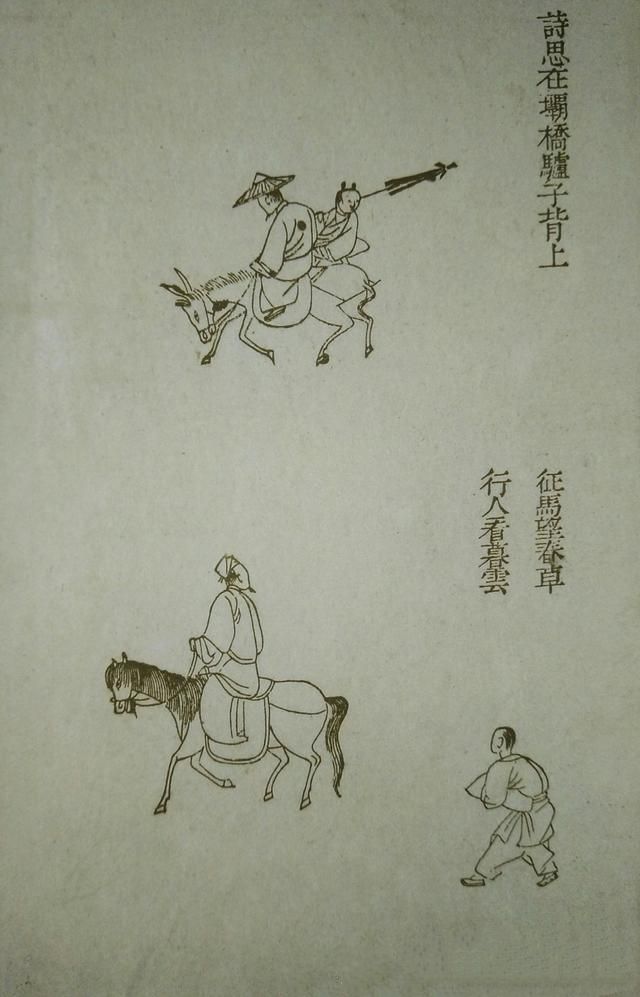 詩思在壩橋驢子背上
征馬望春草
行人看暮雲